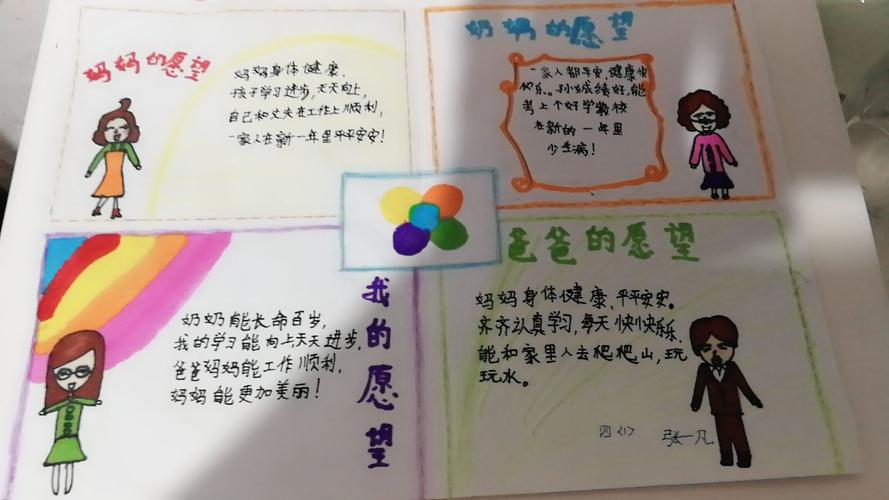 妈妈的愿望
妈妈身体健康,
孩子学习进步,天天向上,
自己和丈夫在工作上顺利,
一家人在新一年里平平安安!
奶奶的愿望
一家人都平安,健康快
快乐。孙成绩好,能
考上个好学校
在新的一年里
少生病!
我的愿望
奶奶能长命百岁,
我的学习能向上天天进步,
爸爸妈妈能工作顺利,
妈妈能更加美丽!
爸爸的愿望
妈妈身体健康,平平安安。
齐齐认真学习,每天快快乐乐,
能和家里人去爬爬山,玩
玩水。
四(1) 张一凡